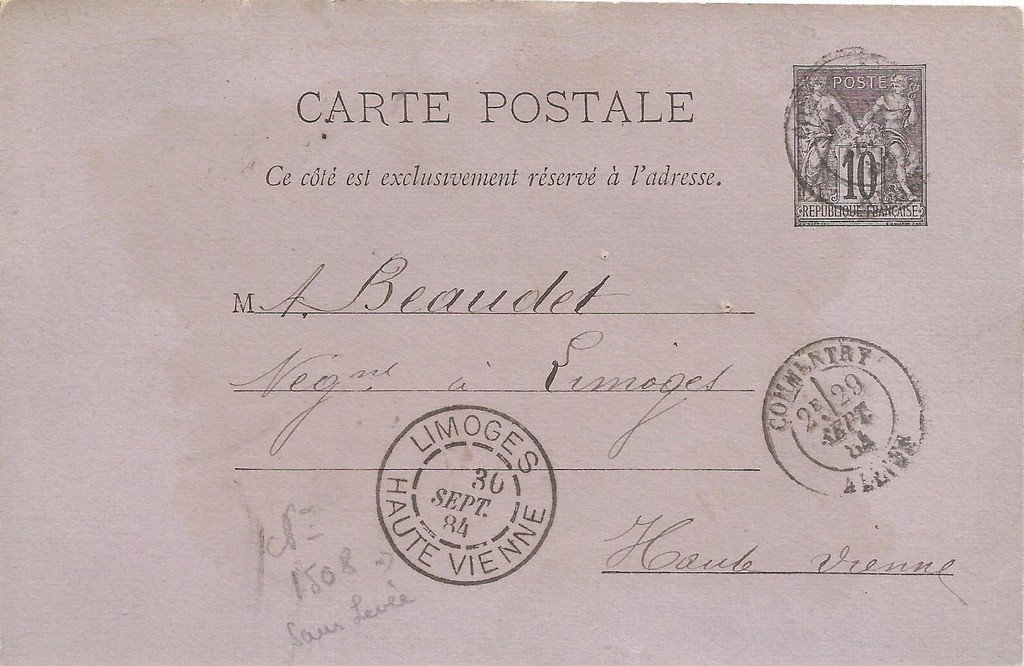 POSTE
10
REPUBLIQUE FRANÇAISE
CARTE POSTALE
Ce côté est exclusivement réservé à l'adresse.
M A. Beaudet
Negnt à Limoges
Haute Vienne
COMMENTRY
2E 29
SEPT.
84
ALLIER
LIMOGES
30
SEPT.
84
HAUTE VIENNE
1508
Sans Levée